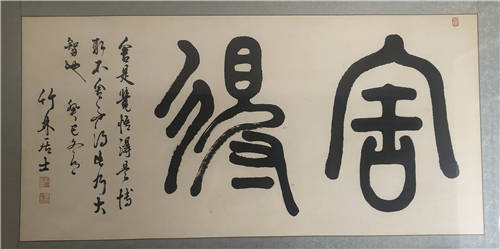 舍得
舍是覺悟得是博
取不舍不得生於大
智也 癸巳
竹泉居士